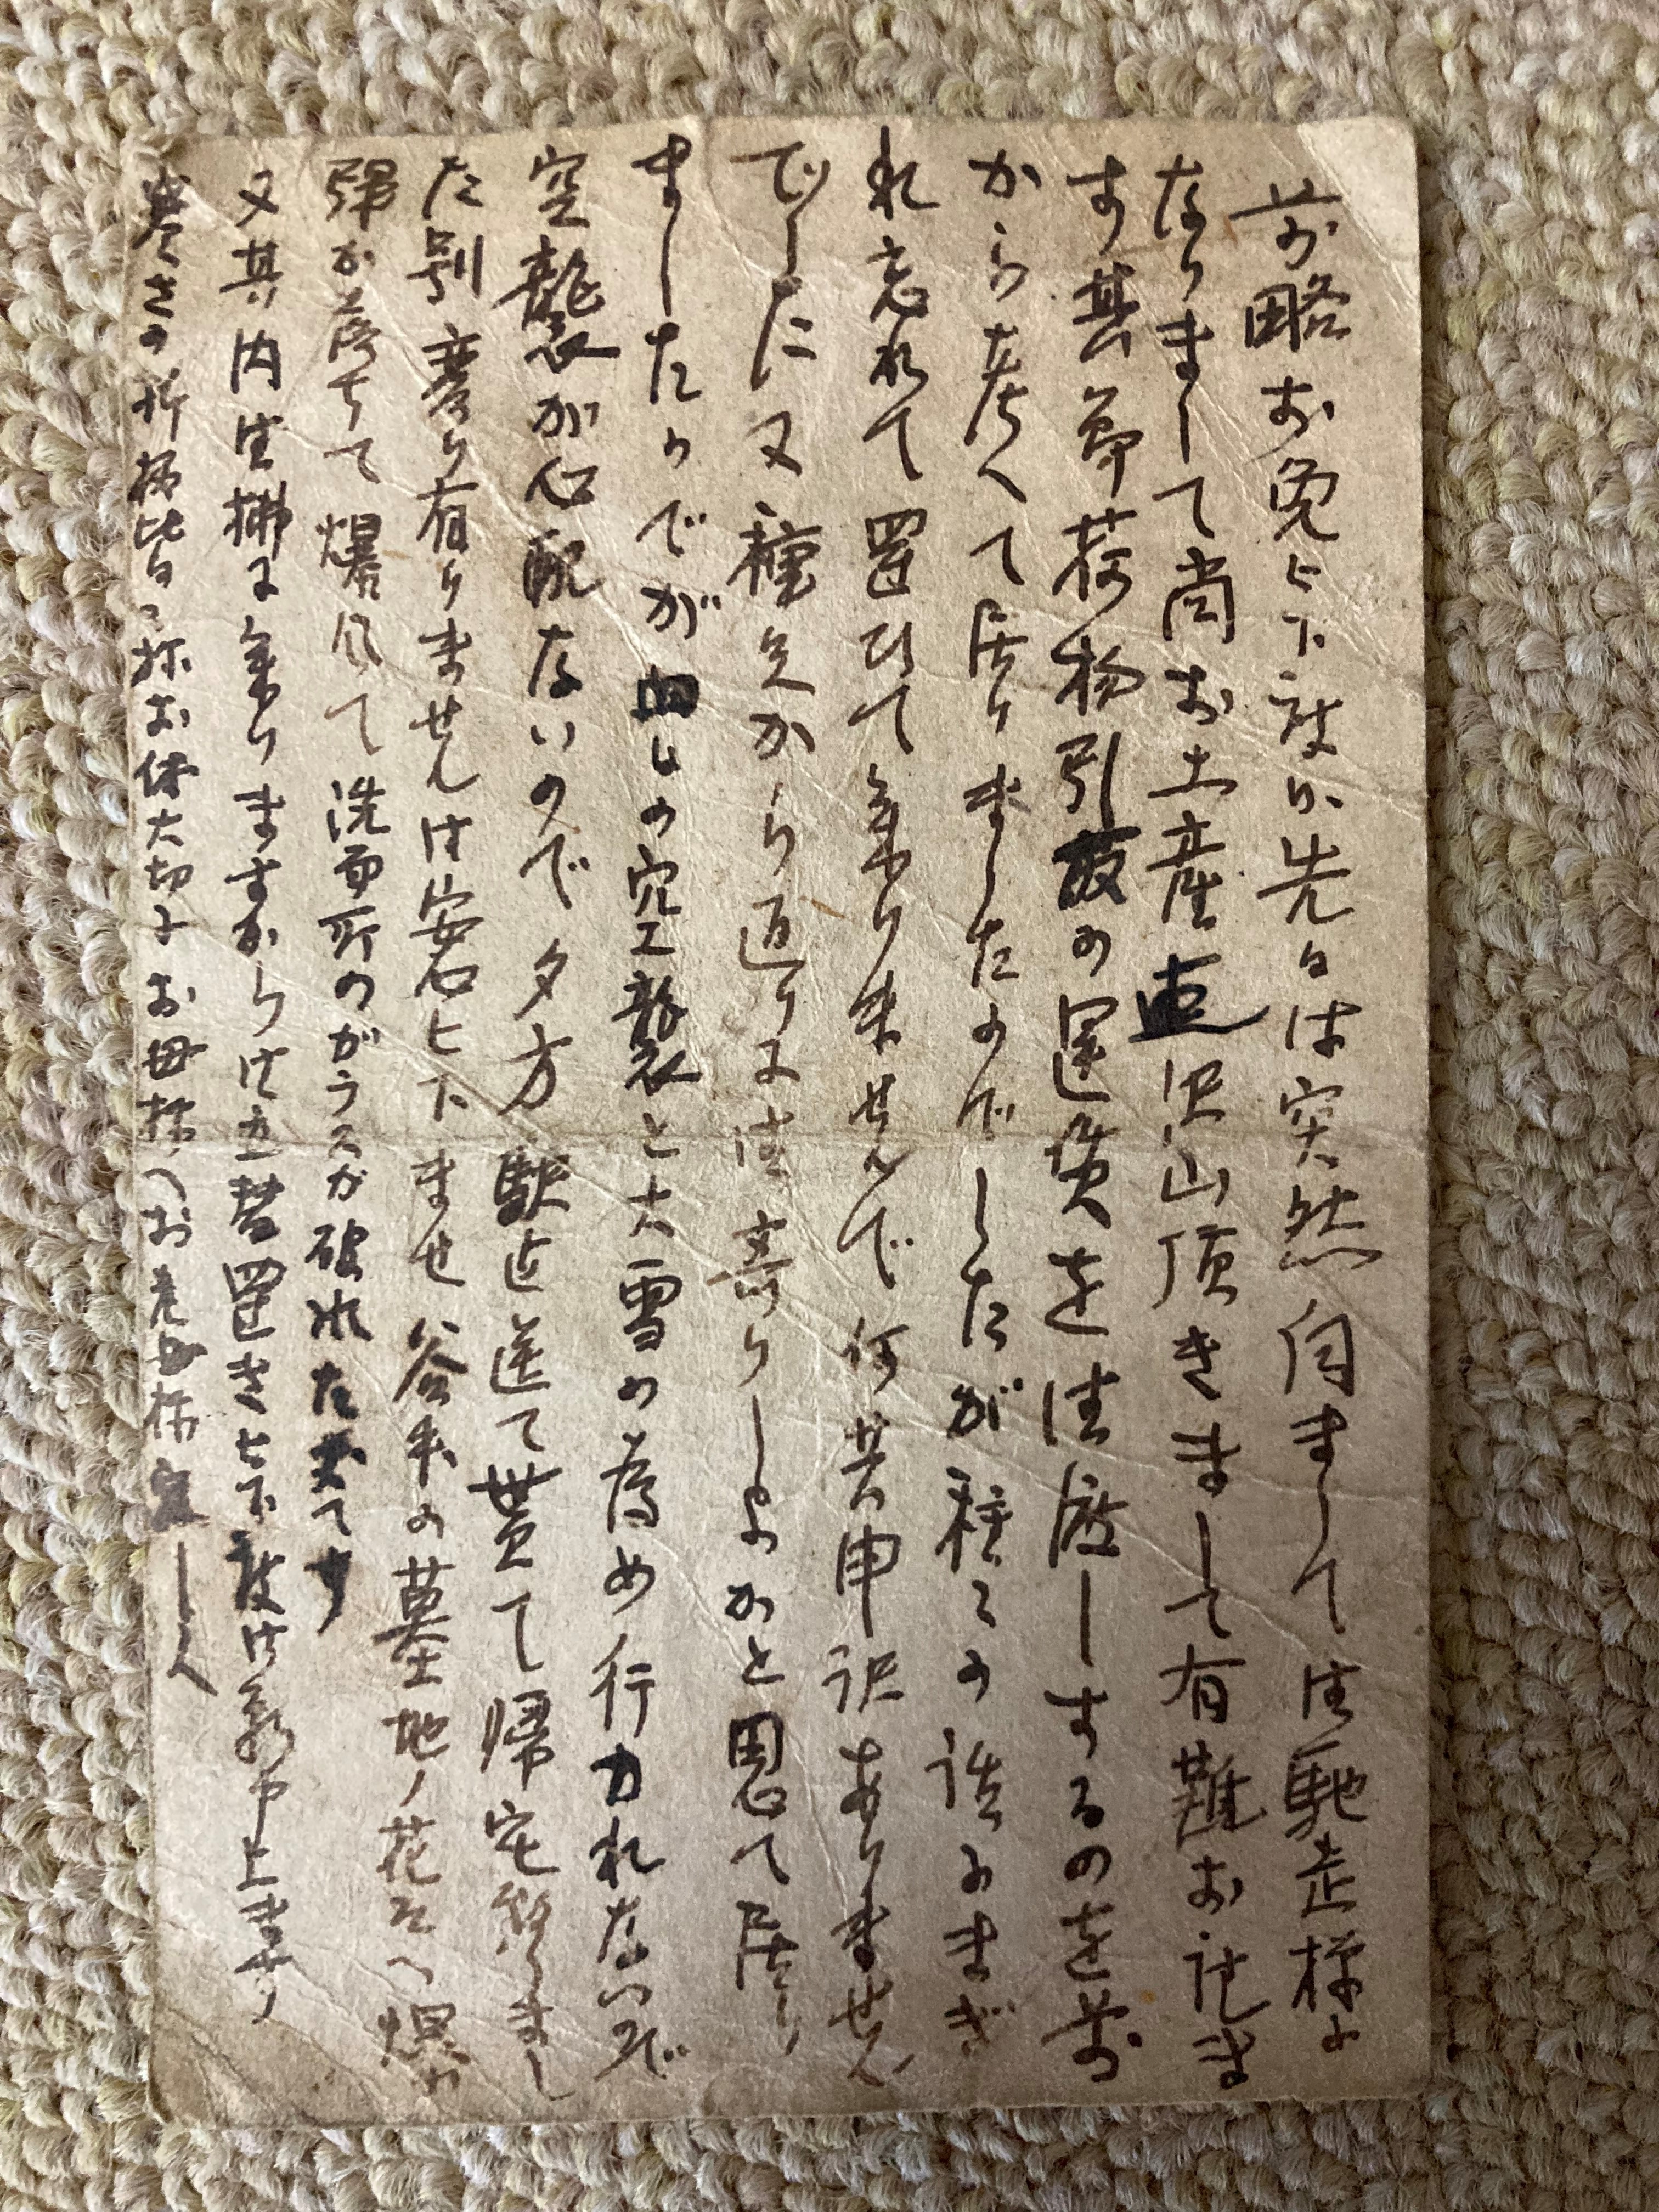 前略お免し下被い先日は突然伺まして御馳走様に
なりまして尚お土産迄沢山頂きまして有難お礼ま
す其節荷物引越の運賃を御渡しするのを前
から考へて居りましたのでしたが種々の話にまぎ
れ忘れて置ひて参りませんで何共申訳ありません
でした又種兄から返りに御寄りしようかと思て居り
ましたのでが の空襲と大雪の為め行かれないで
空襲が心配ないので夕方駅迄送て貰て帰宅致しまし
た別条り有りませんは安心下ませ谷中の墓地ノ花そへ爆
弾が落ちて爆風て洗面所のがらスが破れた 丈てす
又其内御挷に参りますからは立替置き下被は願申上ます
寒さの折柄皆々様お体大切にお母様へお老母様宜しく